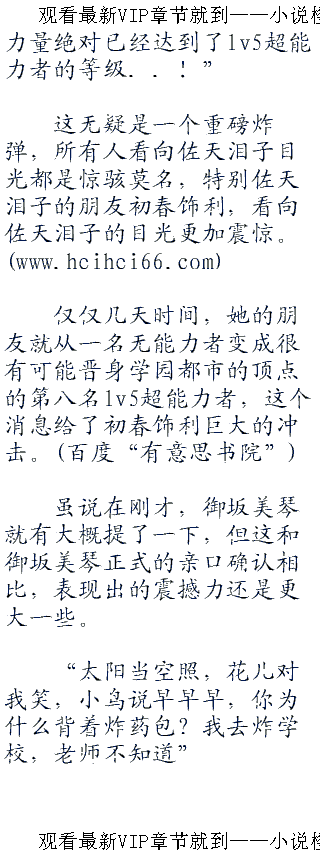 观看最新VIP章节就到——小说
力量绝对已经达到了lv5超能
力者的等级．．！”
这无疑是一个重磅炸
弹，所有人看向佐天泪子目
光都是惊骇莫名，特别佐天
泪子的朋友初春饰利，看向
佐天泪子的目光更加震惊。
(www.hcihci66.com)
仅仅几天时间，她的朋
友就从一名无能力者变成很
有可能晋身学园都市的顶点
的第八名lv5超能力者，这个
消息给了初春饰利巨大的冲
击。(百度“有意思书院”)
虽说在刚才，御坂美琴
就有大概提了一下，但这和
御坂美琴正式的亲口确认相
比，表现出的震撼力还是更
大一些。
“太阳当空照，花儿对
我笑，小鸟说早早早，你为
什么背着炸药包？我去炸学
校，老师不知道”
观看最新VIP章节就到——小说